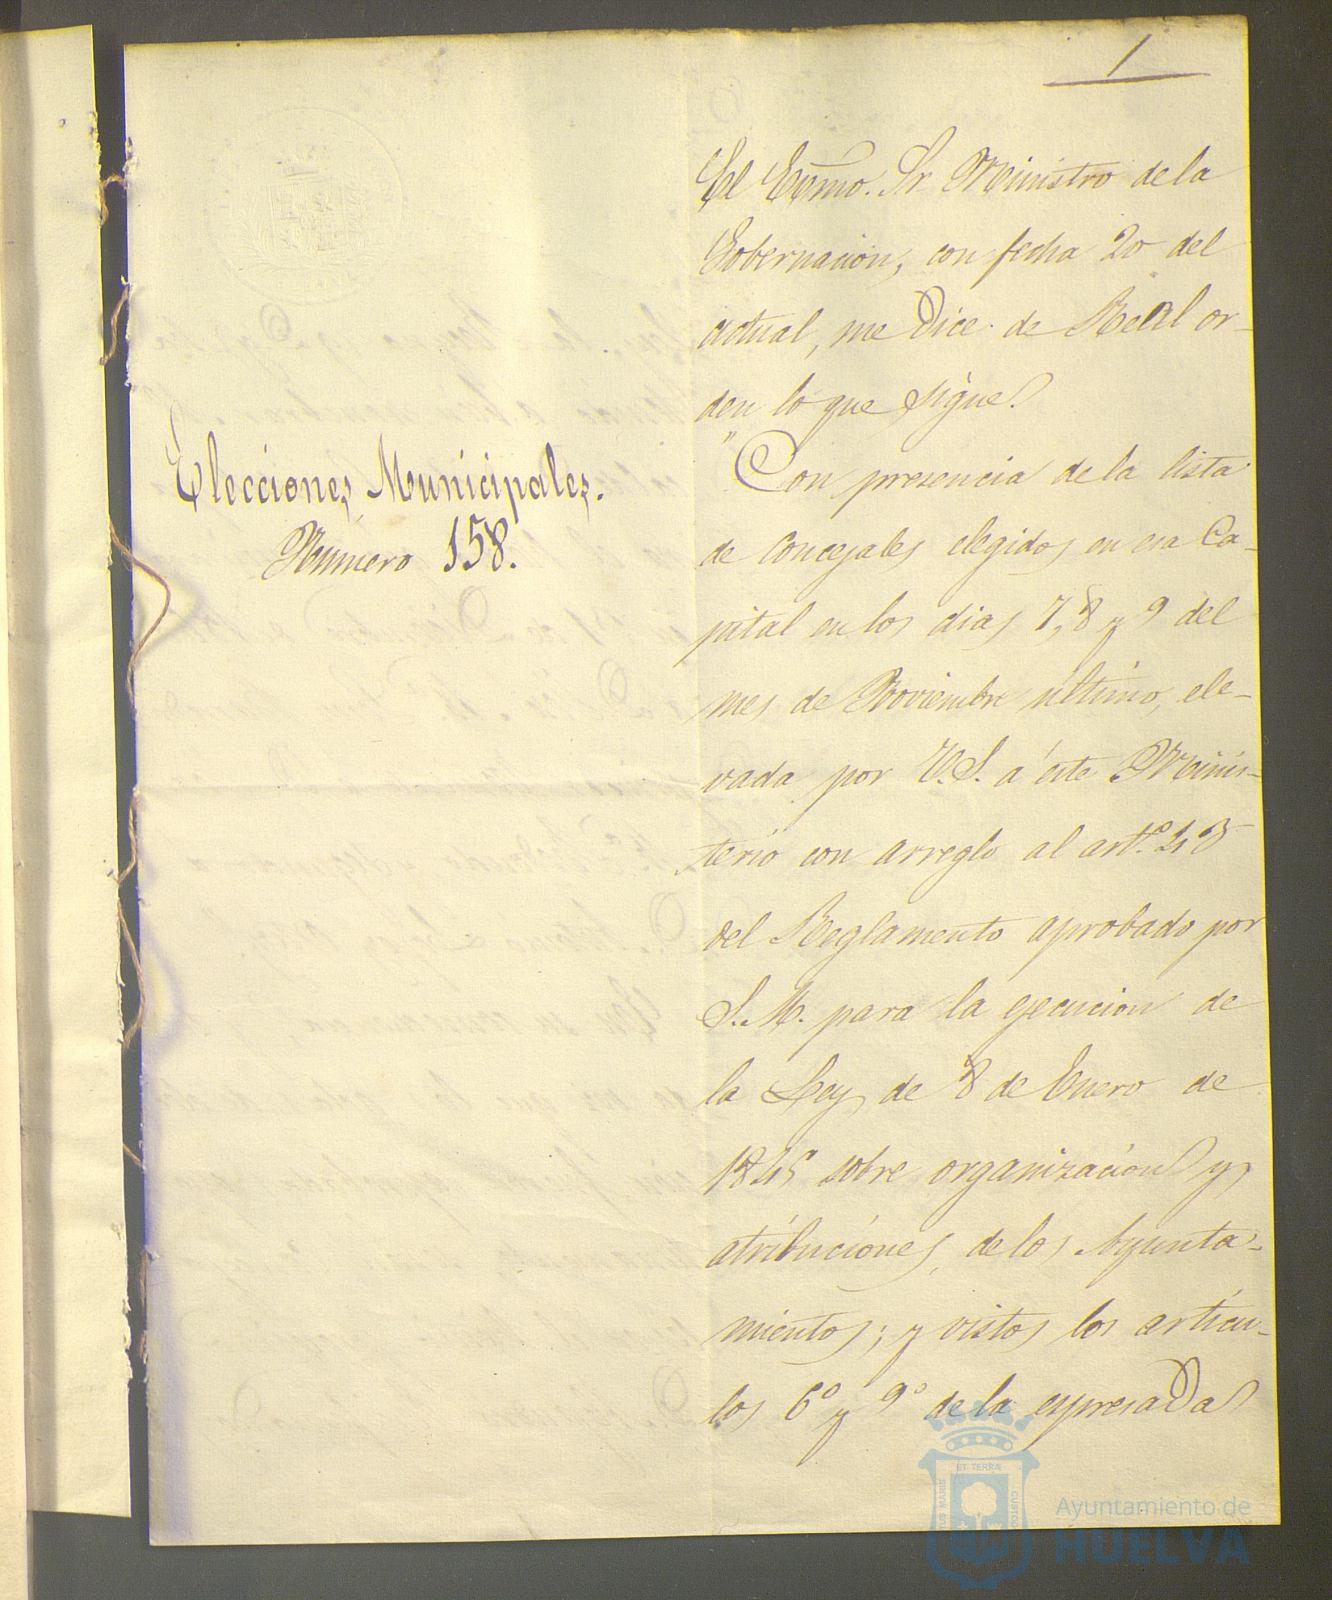 1
Elecciones Municipales.
Número 158.
El Exmo. Sr Ministro de la
Gobernacion, con fecha 20 del
actual, me dice de Real or-
den lo que sigue.
"Con presencia de la lista
de Concejales elegidos en esa Ca-
pital en los dias 7, 8 y 9 del
mes de Noviembre último, ele-
vada por V.S. á este Minis-
terio con arreglo al artº. 45
del Reglamento aprobado por
S.M. para la ejecucion de
la Ley de 8 de Enero de
1845 sobre organizacion y
atribuciones de los Ayunta-
mientos; y vistos los articu-
los 6º y 9º de la espresada
ET TERRÆ
CUSTO
TUS MARIS
Ayuntamiento de
HUELVA